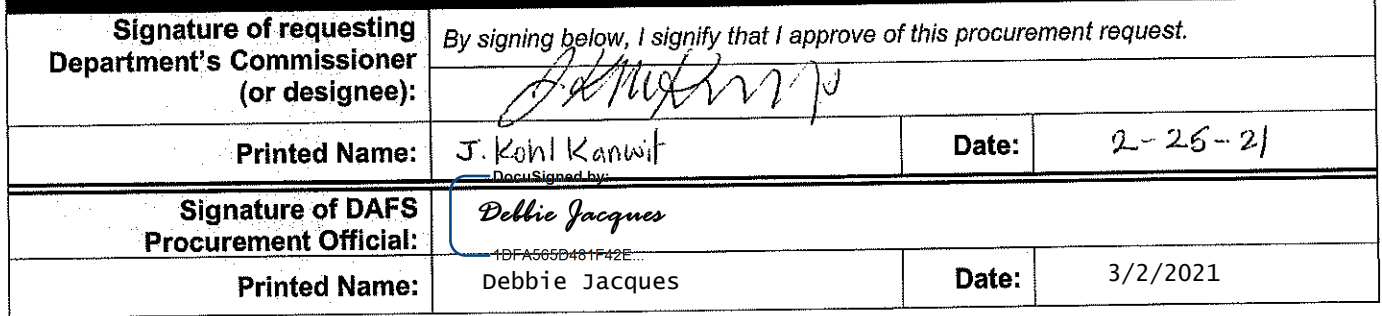 Signature of requesting
Department's Commissioner
(or designee):
By signing below, I signify that I approve of this procurement request.
Printed Name:
J. Kohl Kanwit
Date:
2-25-21
DocuSigned by:
Signature of DAFS
Procurement Official:
Debbie Jacques
1DFA565D481F42E...
Printed Name:
Debbie Jacques
Date:
3/2/2021